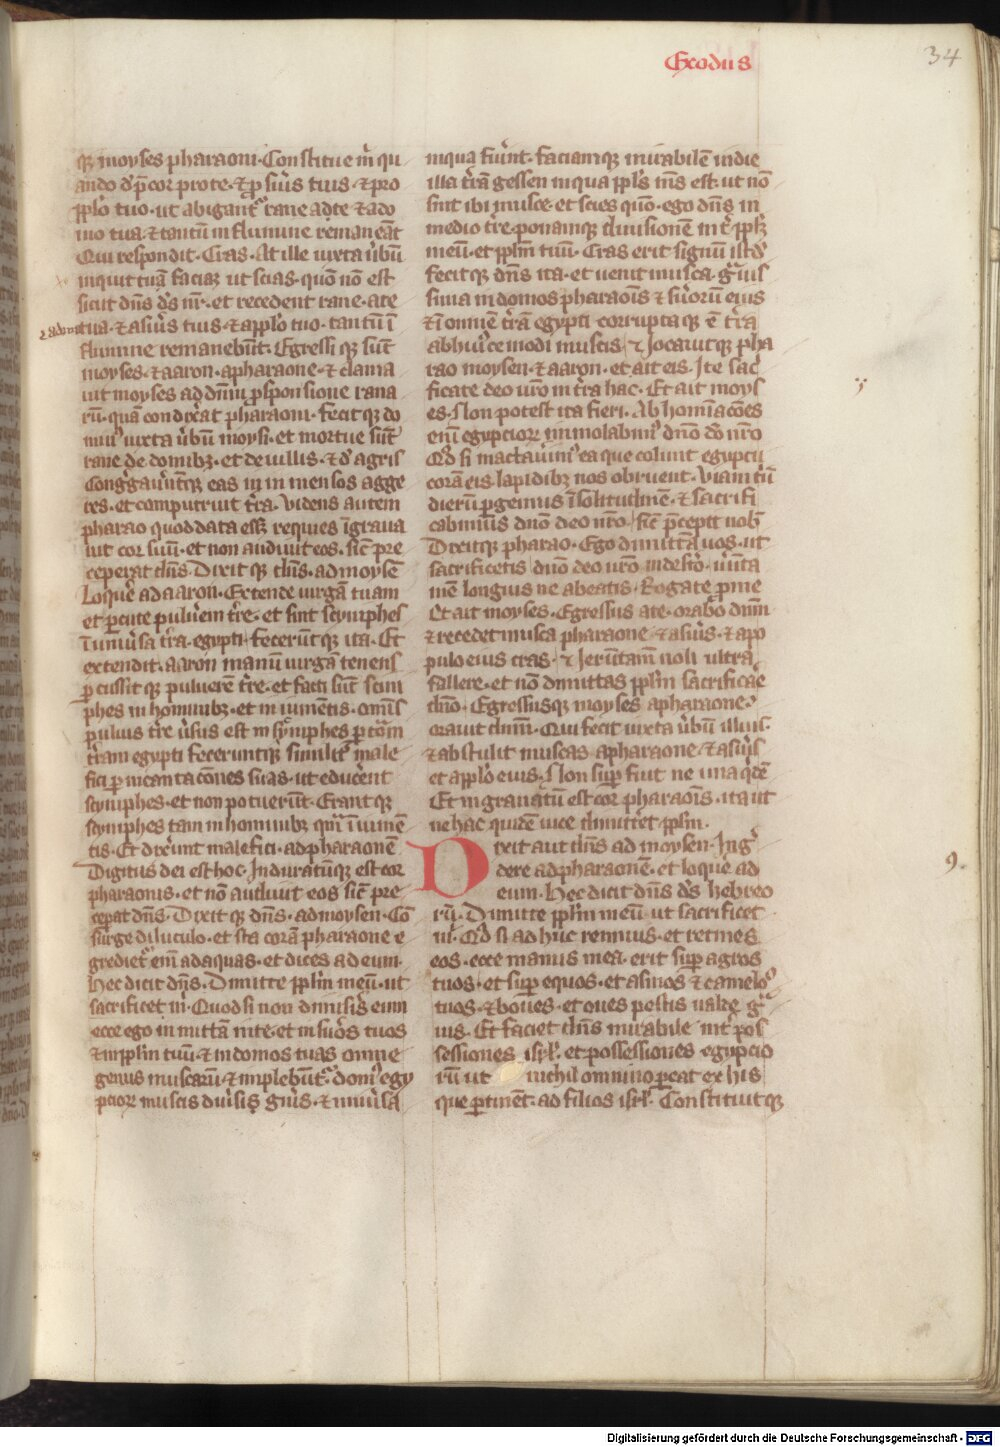 Exodus
34
q₃ moyses pharaoni · Constitue m̄ qu
ando dep̄cor pro te · ⁊ ꝓ suis tuis · ⁊ pro
pplo tuo · ut abigant᷑ rane a te ⁊ a do
mo tua · ⁊ tantū in flumine remaneāt
Qui respondit · Cras · At ille iuxta ūbū
inquit tuū faciaꝫ ut scias · quō nō est
sicut dn̄s ds̄ nr̄ · et recedent rane · a te
tua · ⁊ a suis tuis · ⁊ a pplo tuo · tantū ī
flumine remanebūt · Egressi q₃ sūt
moyses · ⁊ aaron · a pharaone · ⁊ clama
uit moyses ad dnm̄ ꝓ sponsione rana
rū · quā condixāt pharaoni · fecit q₃ do
min᷒ iuxta ūbū moysi · et mortue sūt
rane de domibꝫ · et de uillis · ⁊ d' agris
Congregauūtq₃ eas in inmensos agge
res · et computruit tr̄a · Videns autem
pharao quod data ess₃ requies īgraua
uit cor suū · et non audiuit eos · sic̄ pre
ceperat dn̄s · Dixit q₃ dn̄s · ad moysē
Loquē ad aaron · Extende uirgā tuam
et ꝑcute puluēm tr̄e · et sint scymphes
ī uniūsa tr̄a · egypti · fecerūtq₃ ita · Et
extendit · aaron manū uirgā tenens
ꝑcussit q₃ puluerē tr̄e · et facti sūt scini
phes in hominibꝫ · et in iumētis · omīs
puluis tr̄e ūsus est in scymphes ꝑ totā
tr̄am egypti feceruntq₃ similit᷑ male
fici ꝑ incantacōnes suas · ut educ̄ent
scymphes · et non potuerūt · Erant q₃
scymphes tam in hominibꝫ qm̄ ī iumē
tis · Et dixēunt malefici · ad pharaonē
Digitus dei est hoc · Induratūq₃ est cor
pharaonis · et nō audiuit eos sic̄ pre
cepat dn̄s · Dixit q₃ dn̄s · ad moysen · Cō
surge diluculo · et sta corā pharaone e
grediet᷑ em̄ ad aquas · et dices ad eum ·
Hec dicit dn̄s · Dimitte pplm̄ meū · ut
sacrificet m̄ · Quodsi non dimis̄is eum
ecce ego inmittā in te · et in suos tuos
⁊ in pplm̄ tuū · ⁊ in domos tuas omne
genus muscarū · ⁊ implebūt᷑ · dom᷒ egy
pcioꝝ muscis diūsis gn̄is · ⁊ uniūsa
in qua fūint · faciamq₃ mirabilē in die
illa tr̄ā gessen in qua ppls̄ ms̄ est · ut nō
sint ibi musce · et scies quō · ego dn̄s in
medio tr̄e · ponamq₃ diuisionē int̄ pplꝫ
meū · et pplm̄ tuū · Cras erit signū istd̄
fecit q₃ dn̄s ita · et uenit musca g᷑uis
sima in domos pharaoīs ⁊ suoꝝ eius
⁊ ī omnē tr̄ā egypti corrupta q₃ ē tr̄a
ab hui᷒cemodi muscis · ⁊ Vocauitq₃ pha
rao moysen · ⁊ aaron · et ait eis · Ite sac̄
ficate deo ur̄o in tr̄a hac · Et ait moys
es · Non potest ita fieri · Abhominacōes
enī egypcioꝝ immolabim᷒ dn̄o dō nr̄o
Qd̄ si mactauim᷒ ea que colunt egypcii
corā eis lapidibꝫ nos obruent · Viam t̄ū
dierū pergemus ī solitudinē · ⁊ sacrifi
cabimus dn̄o deo nr̄o · sic̄ p̄cepit nob̄
Dixitq₃ pharao · Ego dimittā uos · ut
sacrificetis dn̄o deo ur̄o in des̄to · ūūta
mē longius ne abeatis · Rogate ꝓ me
Et ait moyses · Egressus a te · orabo dnm̄
⁊ recedet musca pharaone · ⁊ a suis · ⁊ a po
pulo eius cras · ⁊ Ueꝝtamē noli ultra
fallere · et nō dimittas pplm̄ sacrificāe
dn̄o · Egressusq₃ moyses a pharaone
orauit dnm̄ · Qui fecit iuxta ūbū illius ·
⁊ abstulit muscas a pharaone · ⁊ a suis
et a pplo eius · Non suꝑfuit ne una qdē
Et ingrauatū est cor pharaoīs · ita ut
ne hac quidē uice dimitt̄et pplm̄ ·
Dixit aut dn̄s ad moysen · Ing᷑
dere ad pharaonē · et loque ad
eum · Hec dicit dn̄s ds̄ hebreo
rū · Dimitte pplm̄ meū ut sacrificet
m̄ · Qd̄ si adhuc rennuis · et retines
eos · ecce manus mea · erit suꝑ agros
tuos · et suꝑ equos · et asinos ⁊ camelos
tuos · ⁊ boues · et oues pestis ualde g᷑
uis · Et faciet dn̄s mirabile int̄ pos
sessiones isrl̄ · et possessiones egypcio
rū ut nichil omnino ꝑeat ex his
que ꝑtinēt · ad filios isrl̄ · Constituitq₃
9.
Digitalisierung gefördert durch die Deutsche Forschungsgemeinschaft - DFG